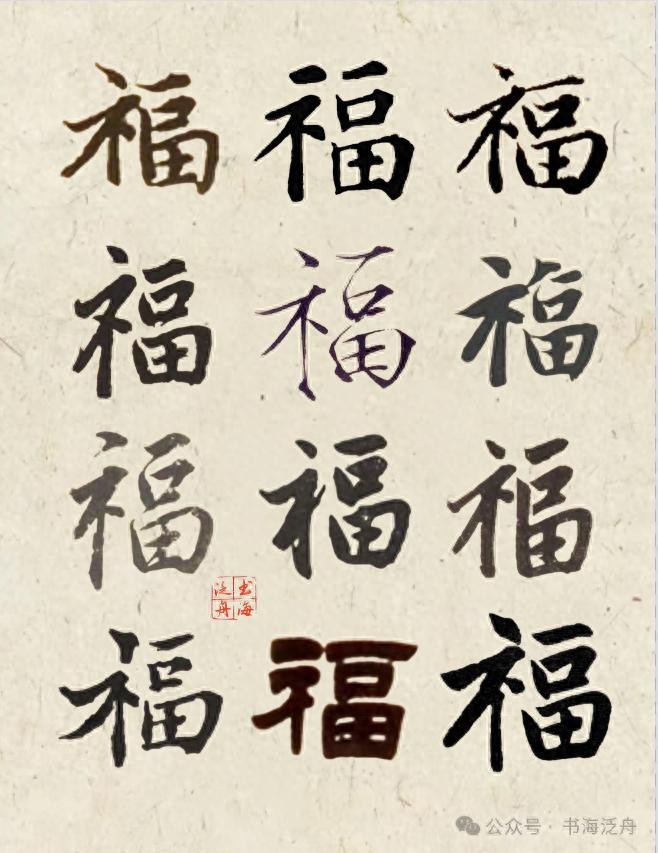 福 福 福
福 福 福
福 福 福
书海泛舟
福 福 福
公众号 · 书海泛舟